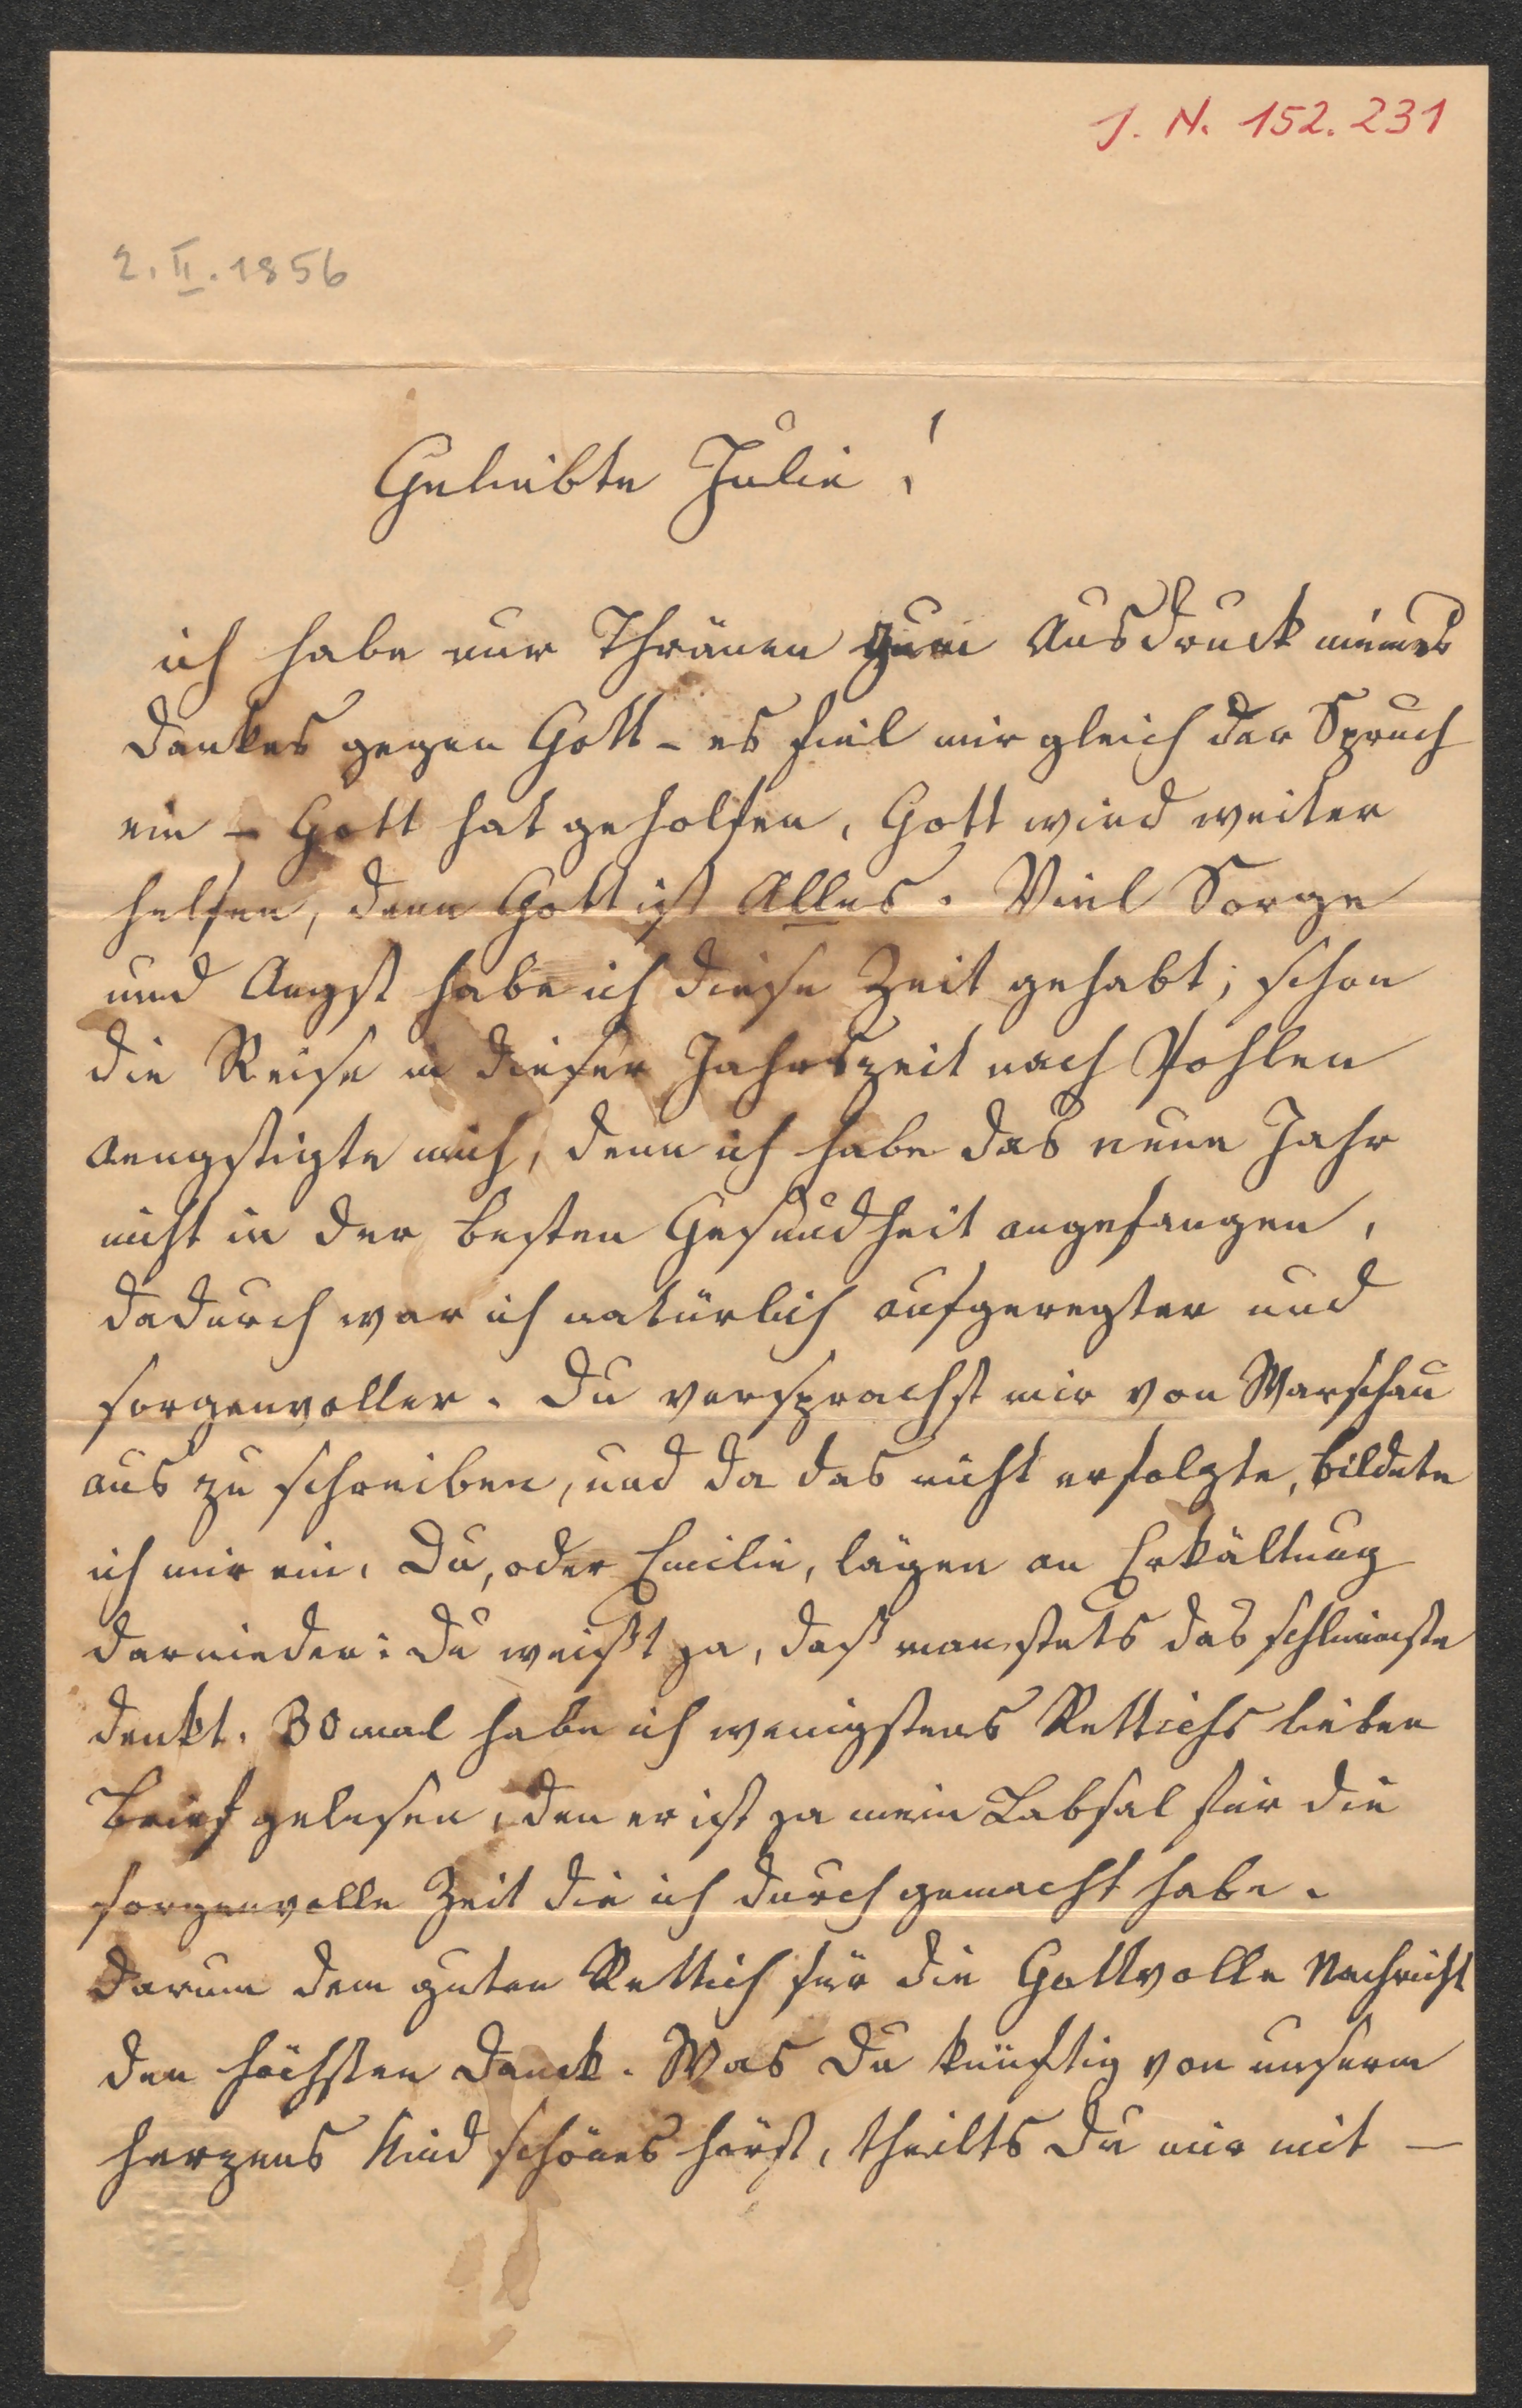 J. N. 152.231
2. II. 1856
Geliebte Julie!
ich habe nur Thränen zum Ausdruck meines
Dankes gegen Gott - es fiel mir gleich der Spruch
ein - Gott hat geholfen, Gott wird weiter
helfen, denn Gott ist Alles. Viel Sorge
und Angst habe ich diese Zeit gehabt; schon
die Reise in dieser Jahrszeit nach Pohlen
aengstigte mich, denn ich habe das neue Jahr
nicht in der besten Gesundheit angefangen,
dadurch war ich natürlich aufgeregter und
sorgenvoller. Du versprachst mir von Warschau
aus zu schreiben, und da das nicht erfolgte, bildete
ich mir ein, Du, oder Emilie, lägen an Erkältung
darnieder: Du weißt ja, daß man stets das schlimmste
denkt. 30 mal habe ich wenigstens Rettichs lieben
Brief gelesen, den er ist ja mein Labsal für die
sorgenvolle Zeit die ich durchgemacht habe.
Darum dem guten Rettich für die Gottvolle Nachricht
den höchsten Danck. Was Du künftig von unserm
herzens Kind schönes hörst, theilts Du mir mit —